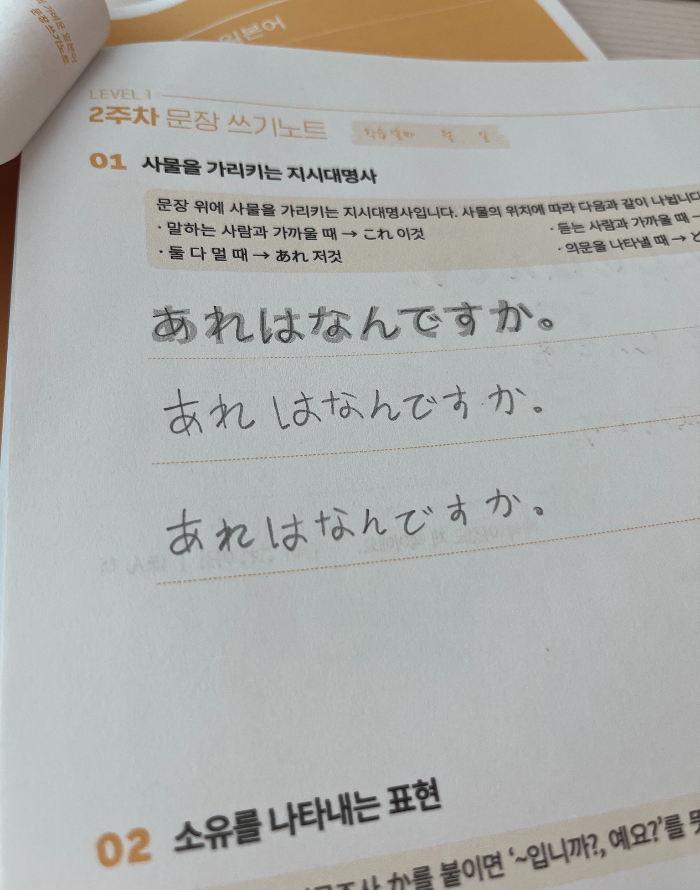 일본어
LEVEL 1
2주차 문장 쓰기노트
학습 날짜 월 일
01 사물을 가리키는 지시대명사
문장 위에 사물을 가리키는 지시대명사입니다. 사물의 위치에 따라 다음과 같이 나뉩니다
· 말하는 사람과 가까울 때 → これ 이것
· 듣는 사람과 가까울 때 →
· 둘 다 멀 때 → あれ 저것
· 의문을 나타낼 때 → ど
あれはなんですか。
あれはなんですか。
あれはなんですか。
02 소유를 나타내는 표현
か를 붙이면 '~입니까?, 예요?'를